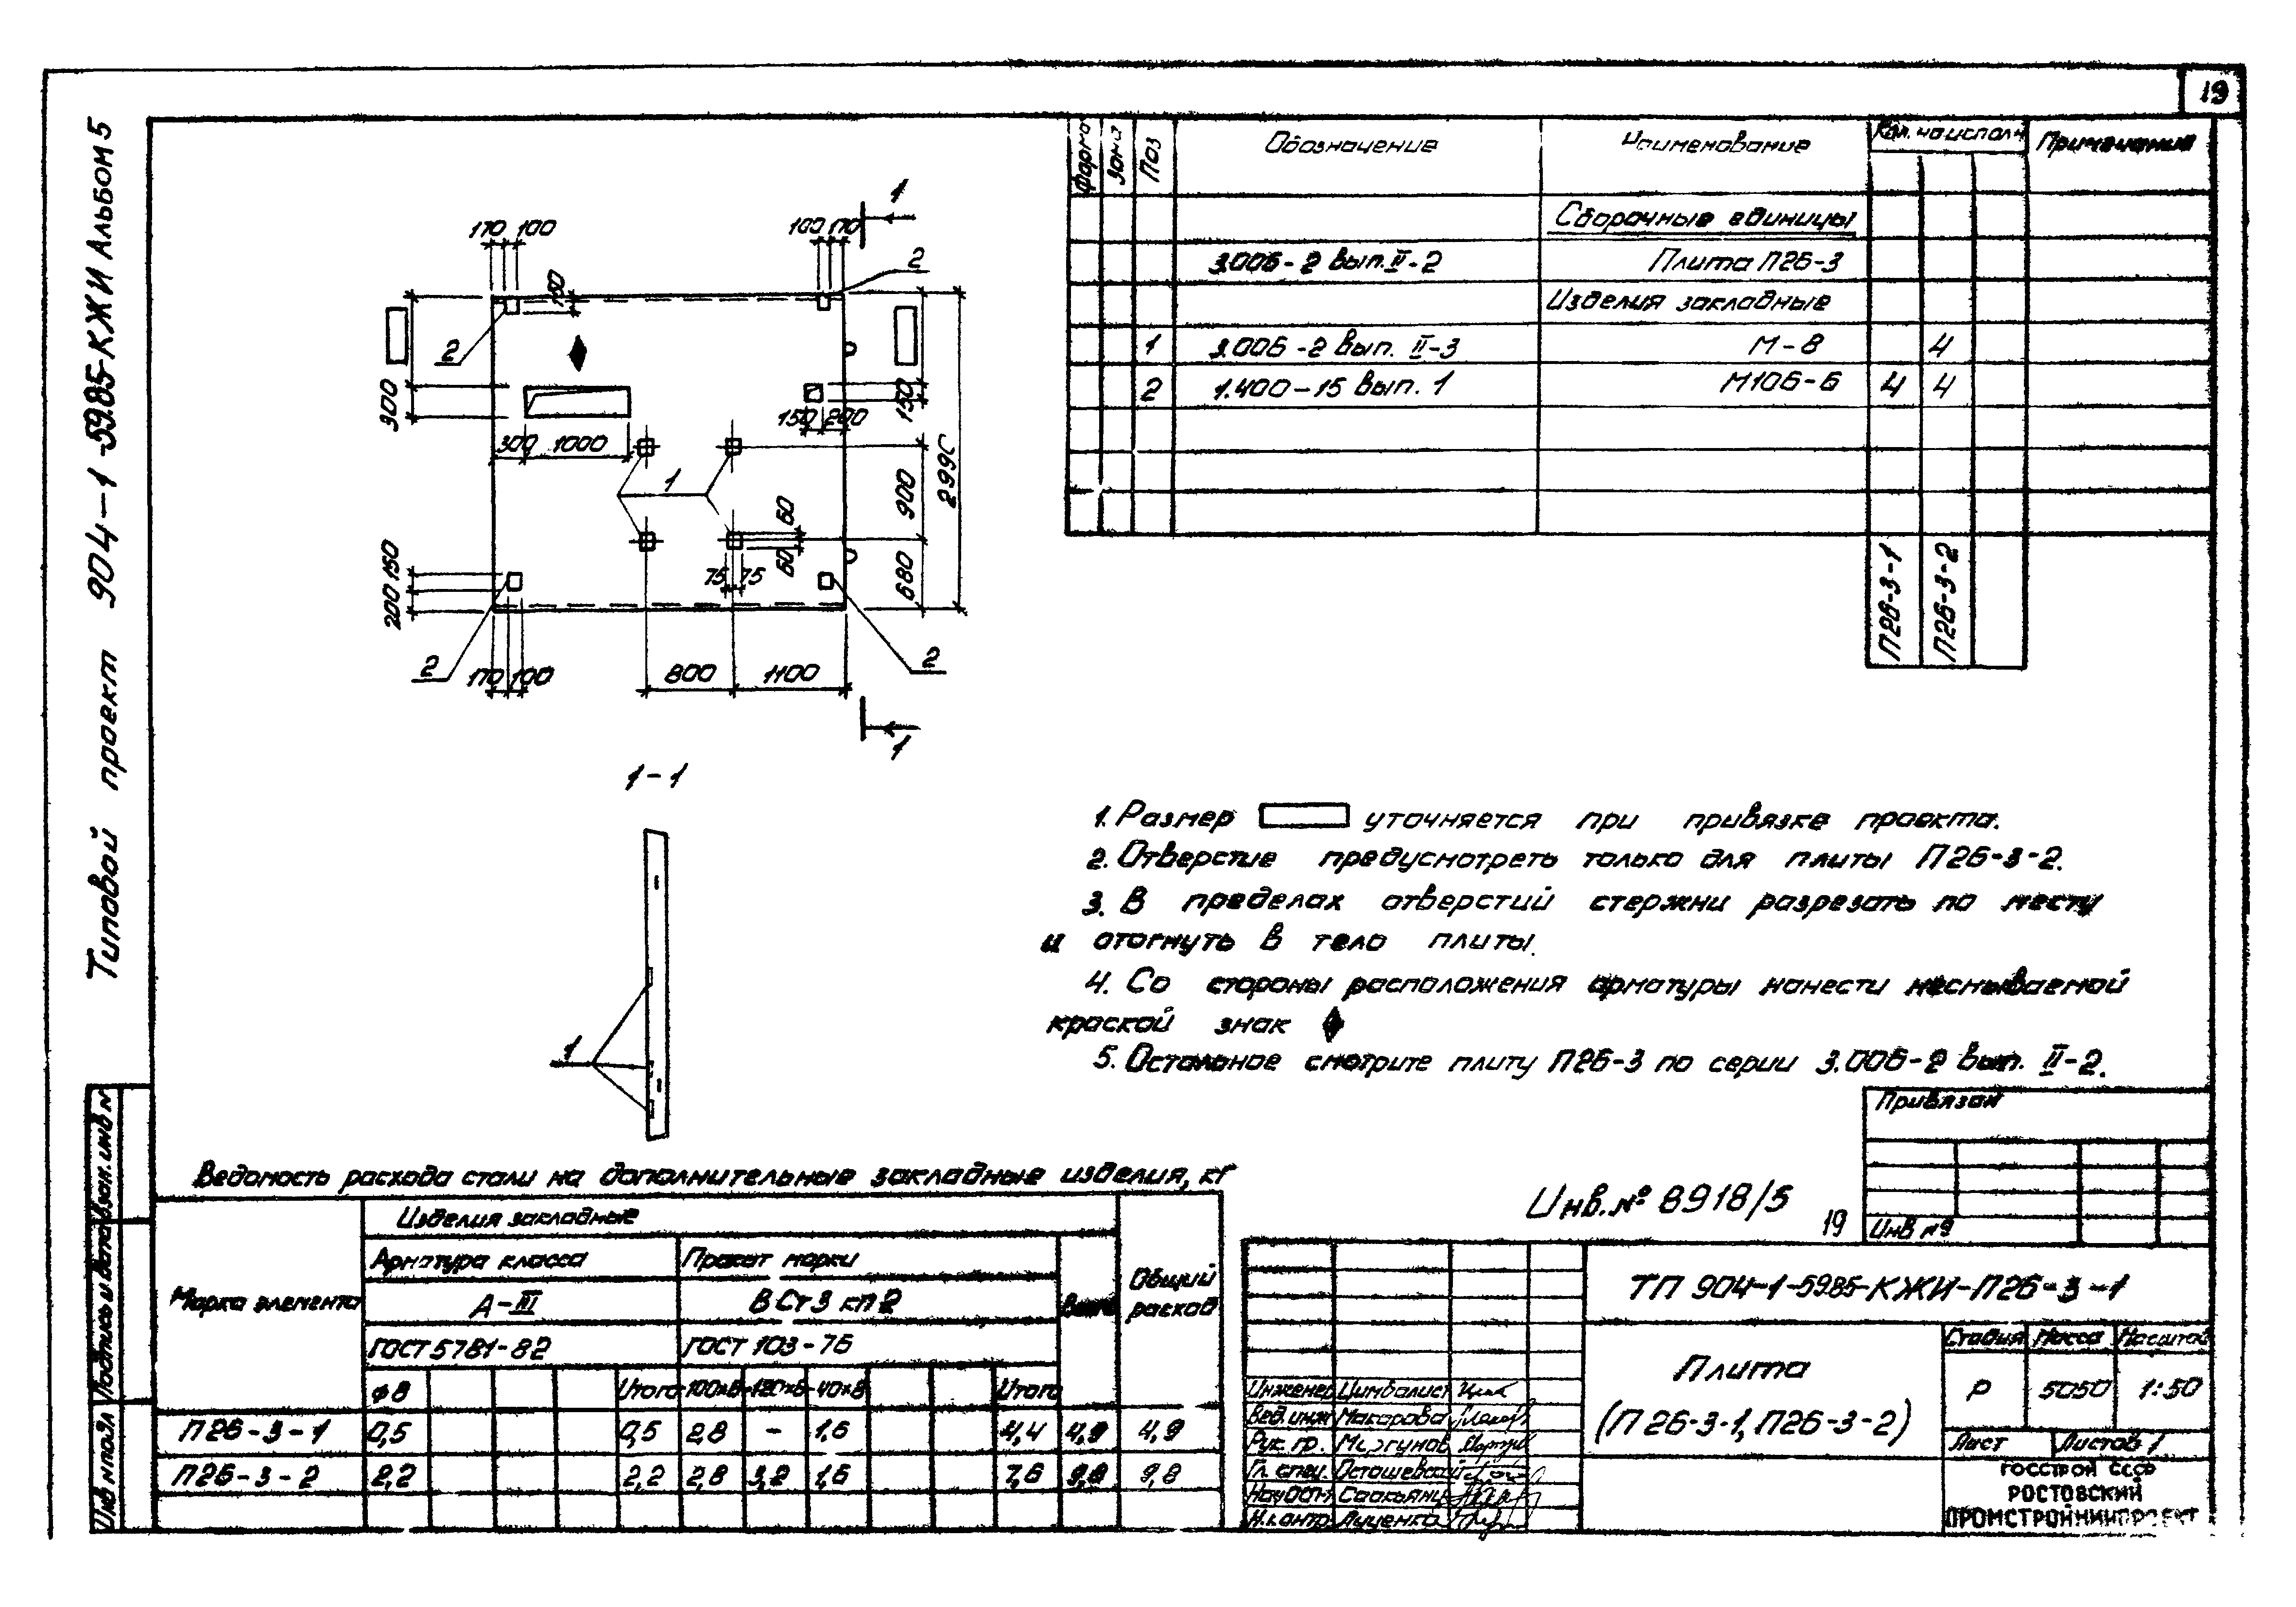 19
Типовой проект 904-1-59.85-КЖИ Альбом 5
Взам. инв №
Подпись и дата
Инв № подл
Форма
Зона
Поз
Обозначение
Наименование
Кол. на исполн
Примечание
Сборочные единицы
3.006-2 вып. II-2 Плита П26-3
Изделия закладные
1 3.006-2 вып. II-3 М-8 4
2 1.400-15 вып. 1 М106-6 4 4
П26-3-1
П26-3-2
1
170 100
100 170
2
150
2
300
150
150 200
300 1000
1
900
2990
60
60
75 75
680
150
200
2
2
170 100
800 1100
1
1-1
1
1. Размер уточняется при привязке проекта.
2. Отверстие предусмотреть только для плиты П26-3-2.
3. В пределах отверстий стержни разрезать по месту
и отогнуть в тело плиты.
4. Со стороны расположения арматуры нанести несмываемой
краской знак
5. Остальное смотрите плиту П26-3 по серии 3.006-2 вып. II-2.
Ведомость расхода стали на дополнительные закладные изделия, кг
Марка элемента
Изделия закладные
Общий
расход
Арматура класса Прокат марки
Всего
А-III ВСт3 кп2
ГОСТ 5781-82 ГОСТ 103-76
ф8 Итого -100х8 -120х6 -40х8 Итого
П26-3-1 0,5 0,5 2,8 - 1,6 4,4 4,9 4,9
П26-3-2 2,2 2,2 2,8 3,2 1,6 7,6 9,8 9,8
Привязан
Инв №
Инв. № 8918/5
19
ТП 904-1-59.85-КЖИ-П26-3-1
Плита
(П26-3-1, П26-3-2)
Стадия Масса Масштаб
Р 5050 1:50
Лист Листов 1
ГОССТРОЙ СССР
РОСТОВСКИЙ
ПРОМСТРОЙНИИПРОЕКТ
Инженер Цимбалист
Вед. инж Макарова
Рук. гр. Моргунов
Гл. спец. Осташевский
Нач. отд Саакьянц
Н. контр. Луценко